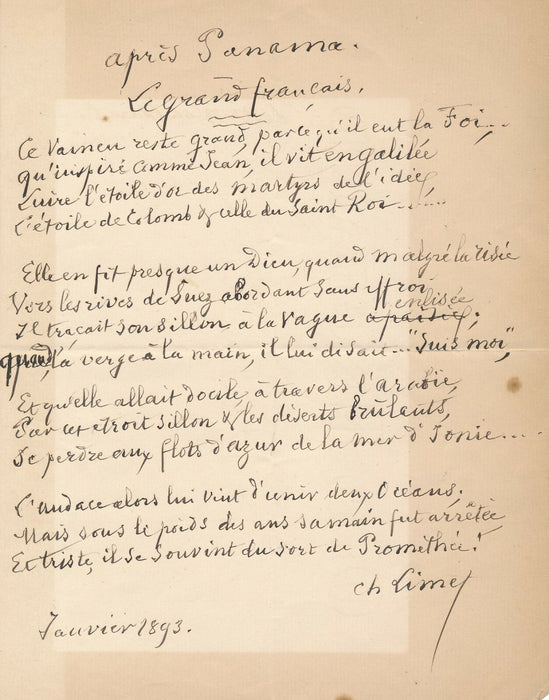 après Panama.
Le grand français.
Ce vaincu reste grand, parce qu'il eut la Foi,...
qu'inspiré comme Jean, il vit en galilée
Luire l'étoile d'or des martyrs de l'idée,
L'étoile de Colomb & celle du Saint Roi......
Elle en fit presque un Dieu, quand malgré la risée
Vers les rives de Suez abordant sans effroi,
enlisée
Il traçait son sillon à la vague apaisée;
quand, la verge à la main, il lui disait..."Suis moi",
Et qu'elle allait docile, à travers l'arabie,
Par cet étroit sillon & les déserts brûlants,
Se perdre aux flots d'azur de la mer d'Ionie....
L'audace alors lui vint d'unir deux Océans;
Mais sous le poids des ans sa main fut arrêtée
Et triste, il se souvint du sort de Prométhée!
ch Limet
Janvier 1893.